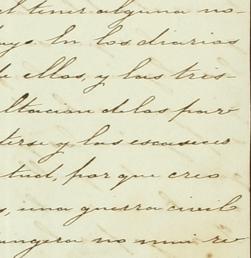 el tener alguna no-
haya. En los diarios
de ellos, y las tres-
ultacion de las par
terse y las escaseses
tud, por que creo
s, una guerra civil
rangera no mui re